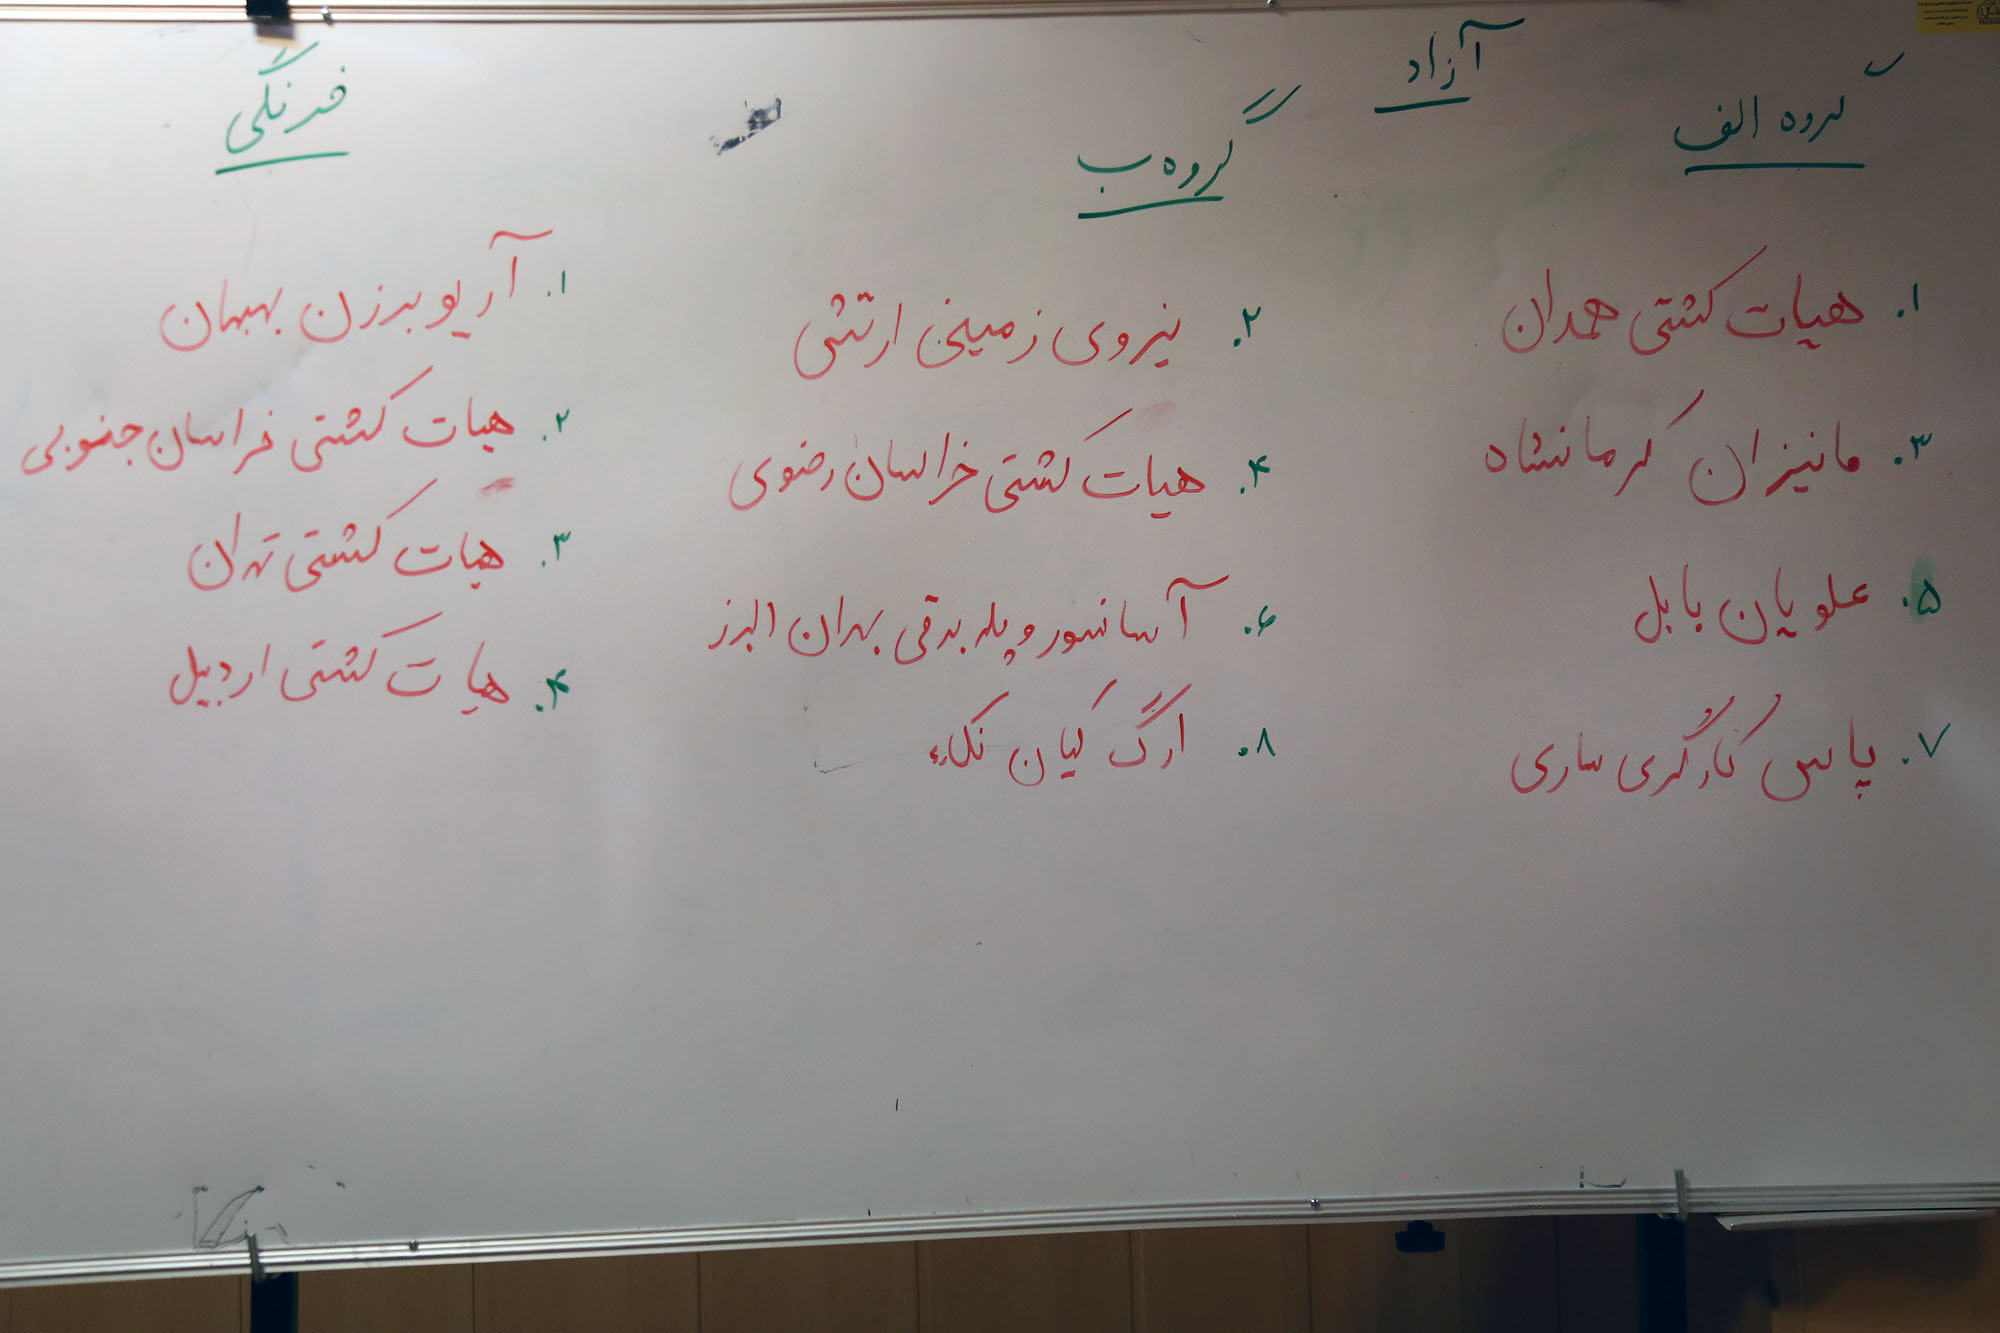 آزاد
گروه الف
۱. هیات کشتی همدان
۳. مانیزان کرمانشاه
۵. علویان بابل
۷. پاس کارگری ساری
گروه ب
۲. نیروی زمینی ارتش
۴. هیات کشتی خراسان رضوی
۶. آسانسور و پله برقی بهران البرز
۸. ارگ کیان نکاء
فرنگی
۱. آریوبرزن بهبهان
۲. هیات کشتی خراسان جنوبی
۳. هیات کشتی تهران
۴. هیات کشتی اردبیل